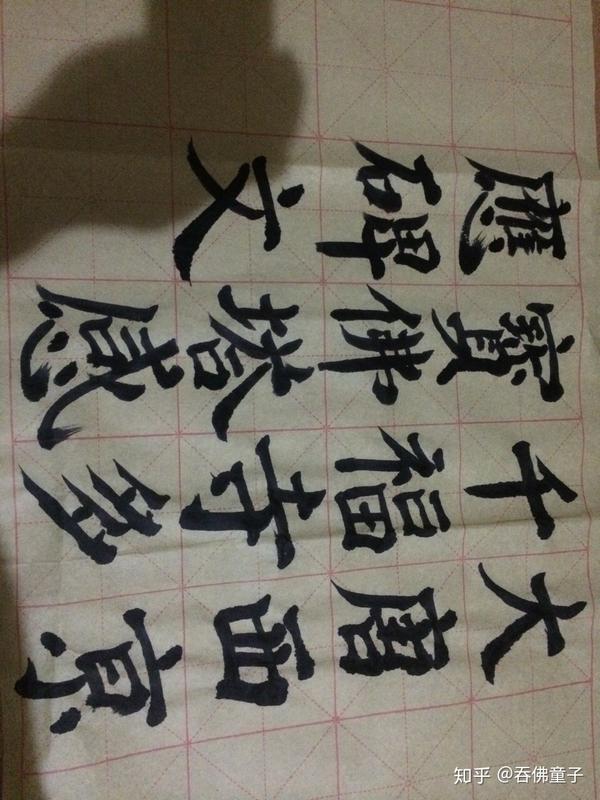 大唐西京
千福寺多
寶佛塔感
應碑文
知乎 @吞佛童子